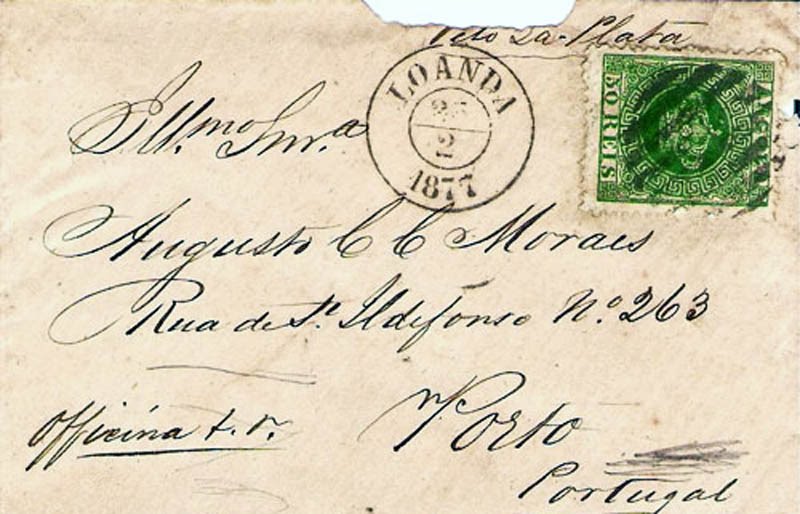 Pelo La Plata
LOANDA
2
1877
ANGOLA
50 REIS
Ill.mo Snr.
Augusto C C Moraes
Rua de St.º Ildefonso Nº 263
Porto
Portugal
Officina